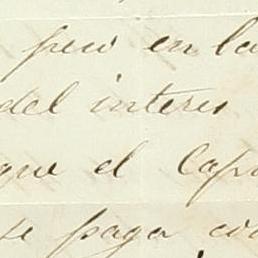 pero en la
del interes
que el Cap
se paga co